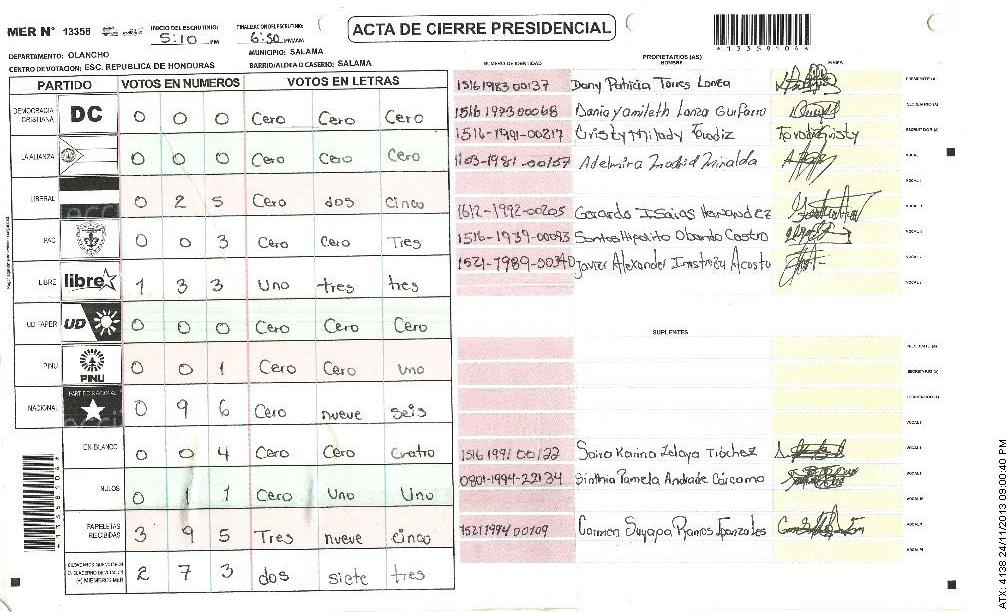 MER N° 13358
INICIO DEL ESCRUTINIO: 5:10 PM
FINALIZACION DEL ESCRUTINIO: 6:50 PM/AM
ACTA DE CIERRE PRESIDENCIAL
DEPARTAMENTO: OLANCHO
MUNICIPIO: SALAMA
CENTRO DE VOTACION: ESC. REPUBLICA DE HONDURAS
BARRIO/ALDEA O CASERIO: SALAMA
PARTIDO VOTOS EN NUMEROS VOTOS EN LETRAS
DEMOCRACIA CRISTIANA DC 0 0 0 Cero Cero Cero
LA ALIANZA 0 0 0 Cero Cero Cero
LIBERAL 0 2 5 Cero dos cinco
PAC 0 0 3 Cero Cero Tres
LIBRE libre 1 3 3 Uno tres tres
UD FAPER UD 0 0 0 Cero Cero Cero
PINU PINU 0 0 1 Cero Cero uno
NACIONAL PARTIDO NACIONAL 0 9 6 Cero nueve seis
EN BLANCO 0 0 4 Cero Cero Cuatro
NULOS 0 1 1 Cero Uno Uno
PAPELETAS RECIBIDAS 3 9 5 Tres nueve cinco
CIUDADANOS QUE VOTARON EN CUADERNO DE VOTACION (+) MIEMBROS MER 2 7 3 dos siete tres
PROPIETARIOS (AS)
NUMERO DE IDENTIDAD NOMBRE FIRMA
1516 1983 00137 Dany Patricia Torres Lanza PRESIDENTE (A)
1516 1973 00068 Dania yamileth Lanza Guifarro SECRETARIO (A)
1516-1991-00217 Cristy Milady ESCRUTADOR (A)
1103-1981-00107 Adelmira Madrid VOCAL
1612-1992-00205 Gerardo Isaias Hernandez
1516-1939-00093 Santos Hipolito Obando Castro
1521-1989-00340 Javier Alexander Acosta
SUPLENTES
PRESIDENTE (A)
SECRETARIO (A)
ESCRUTADOR (A)
1516 1991 00122 Saira Karina Zelaya Tróchez
0801-1994-22134 Sinthia Pamela Andrade Cárcamo
1521 1994 00109 Carmen Suyapa Ramos Gonzales
A13358104A
ATX: 4138 24/11/2013 09:00:40 PM